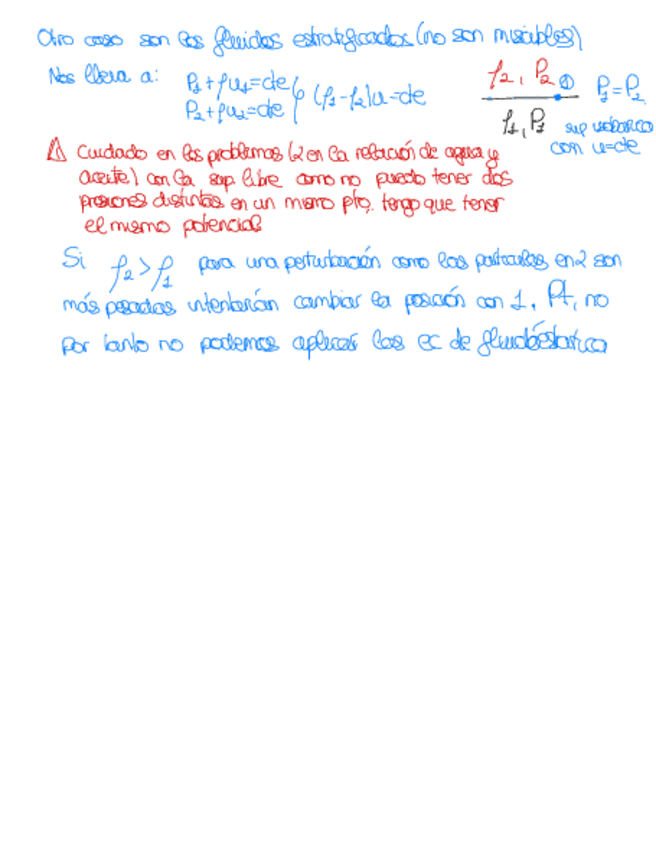 Otro caso son los fluidos estratificados (no son miscibles)
Nos lleva a: P₁+ρu₁=cte
P₂+ρu₂=cte } (ρ₁-ρ₂)u=cte
ρ₂, P₂ ①
ρ₁, P₁
P₁=P₂
sup isobárica
con u=cte
⚠ Cuidado en los problemas (2 en la relación de agua y
aceite) con la sup. libre como no puedo tener dos
presiones distintas en un mismo pto. tengo que tener
el mismo potencial
Si ρ₂>ρ₁ para una perturbación como las partículas en 2 son
más pesadas intentarían cambiar la posición con 1, no
por tanto no podemos aplicar las ec de fluidoestática